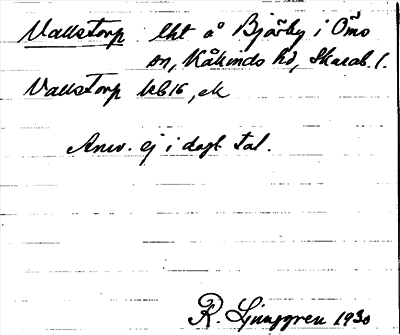 Vallstorp lht å Bjärby i Öms
sn, Kåkinds hd, Skarab. l.
Vallstorp kb16, ek
Anv. ej i dagl. tal.
R. Ljunggren 1930